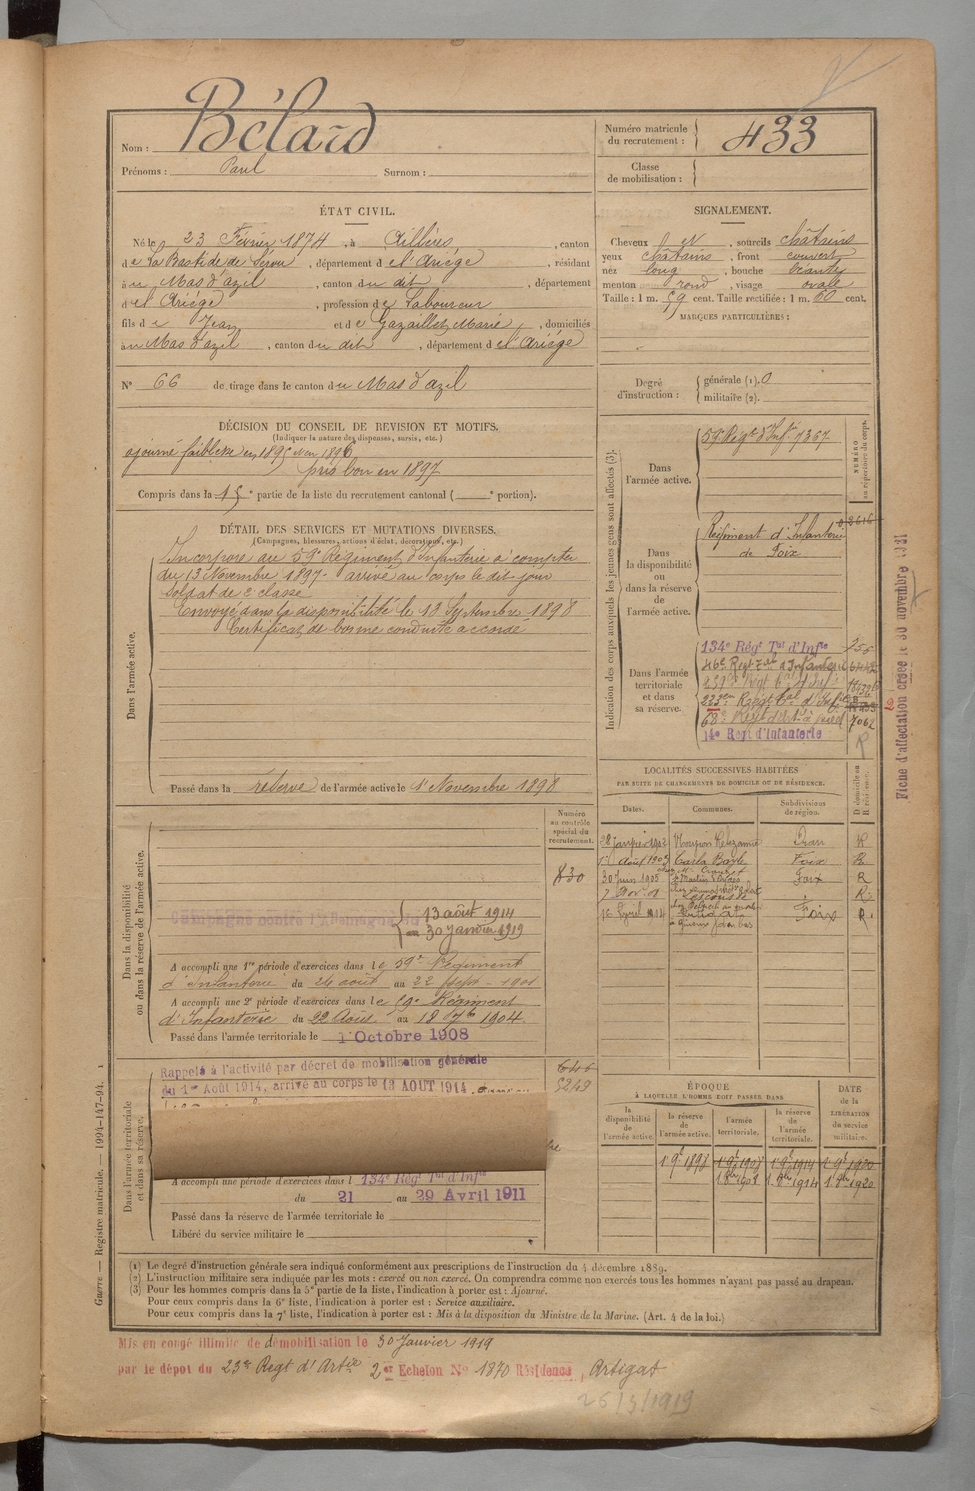 Nom : Bélard
Prénoms : Paul Surnom :
Numéro matricule du recrutement : 433
Classe de mobilisation :
ÉTAT CIVIL.
Né le 23 Février 1874, à Aillères, canton
de La Bastide de Sérou, département de l'Ariége, résidant
au Mas d'azil, canton du dit, département
de l'Ariége, profession de Laboureur
fils de Jean et de Gazaillet Marie, domiciliés
au Mas d'azil, canton du dit, département de l'Ariége
N° 66 de tirage dans le canton du Mas d'azil
SIGNALEMENT.
Cheveux et sourcils châtains
yeux châtains, front couvert
nez long, bouche béante
menton rond, visage ovale
Taille : 1 m. 59 cent. Taille rectifiée : 1 m. 60 cent.
MARQUES PARTICULIÈRES :
Degré d'instruction : générale (1). 0
militaire (2).
DÉCISION DU CONSEIL DE REVISION ET MOTIFS.
(Indiquer la nature des dispenses, sursis, etc.)
ajourné faiblesse en 1895 et en 1896
pris bon en 1897
Compris dans la 1e partie de la liste du recrutement cantonal ( e portion).
DÉTAIL DES SERVICES ET MUTATIONS DIVERSES.
(Campagnes, blessures, actions d'éclat, décorations, etc.)
Dans l'armée active.
Incorporé au 59e Régiment d'Infanterie à compter
du 13 Novembre 1897. arrivé au corps le dit jour
soldat de 2e classe
Envoyé dans la disponibilité le 13 Septembre 1898
Certificat de bonne conduite accordé
Passé dans la réserve de l'armée active le 1er Novembre 1898
Indication des corps auxquels les jeunes gens sont affectés (3).
NUMÉRO au répertoire du corps.
Dans l'armée active.
59e Régt d'Infie 7367
Dans la disponibilité ou dans la réserve de l'armée active.
Régiment d'Infanterie
de Foix
Dans l'armée territoriale et dans sa réserve.
134e Régt Tal d'Infie
46e Regt Tal d'Infanterie
68e Regt d'Art à pied 7062
14e Regt d'Infanterie
Fiche d'affectation créée le 30 novembre 1921
Dans la disponibilité ou dans la réserve de l'armée active.
Numéro au contrôle spécial du recrutement.
830
Campagne contre l'Allemagne du
13 août 1914
au 30 janvier 1919
A accompli une 1re période d'exercices dans le 59e Régiment
d'Infanterie du 26 août au 22 Sept. 1901
A accompli une 2e période d'exercices dans le 59e Régiment
d'Infanterie du 22 Août au 18 7bre 1904.
Passé dans l'armée territoriale le 1 Octobre 1908
LOCALITÉS SUCCESSIVES HABITÉES
PAR SUITE DE CHANGEMENTS DE DOMICILE OU DE RÉSIDENCE.
Dates. Communes. Subdivisions de région. D domicile ou R résidence.
28 janvier 1903 Oran R
1er Août 1903 Carla Bayle Foix R
30 Juin 1905 Foix R
R
1er April 1914 Foix R
Dans l'armée territoriale et dans sa réserve.
Rappelé à l'activité par décret de mobilisation générale
du 1er Août 1914, arrivé au corps le 13 AOUT 1914
646
5249
A accompli une période d'exercices dans l 134e Régt Tal d'Infie
du 21 au 29 Avril 1911
Passé dans la réserve de l'armée territoriale le
Libéré du service militaire le
ÉPOQUE
À LAQUELLE L'HOMME DOIT PASSER DANS
la disponibilité de l'armée active. la réserve de l'armée active. l'armée territoriale. la réserve de l'armée territoriale. DATE de la LIBÉRATION du service militaire.
Guerre — Registre matricule. — 1994-147-94. 1
(1) Le degré d'instruction générale sera indiqué conformément aux prescriptions de l'instruction du 4 décembre 1889.
(2) L'instruction militaire sera indiquée par les mots : exercé ou non exercé. On comprendra comme non exercés tous les hommes n'ayant pas passé au drapeau.
(3) Pour les hommes compris dans la 5e partie de la liste, l'indication à porter est : Ajourné.
Pour ceux compris dans la 6e liste, l'indication à porter est : Service auxiliaire.
Pour ceux compris dans la 7e liste, l'indication à porter est : Mis à la disposition du Ministre de la Marine. (Art. 4 de la loi.)
Mis en congé illimité de démobilisation le 30 Janvier 1919
par le dépot du 23e Regt d'Artie 2er Echelon N° 1870 Résidence, Artigat
26/3/1919